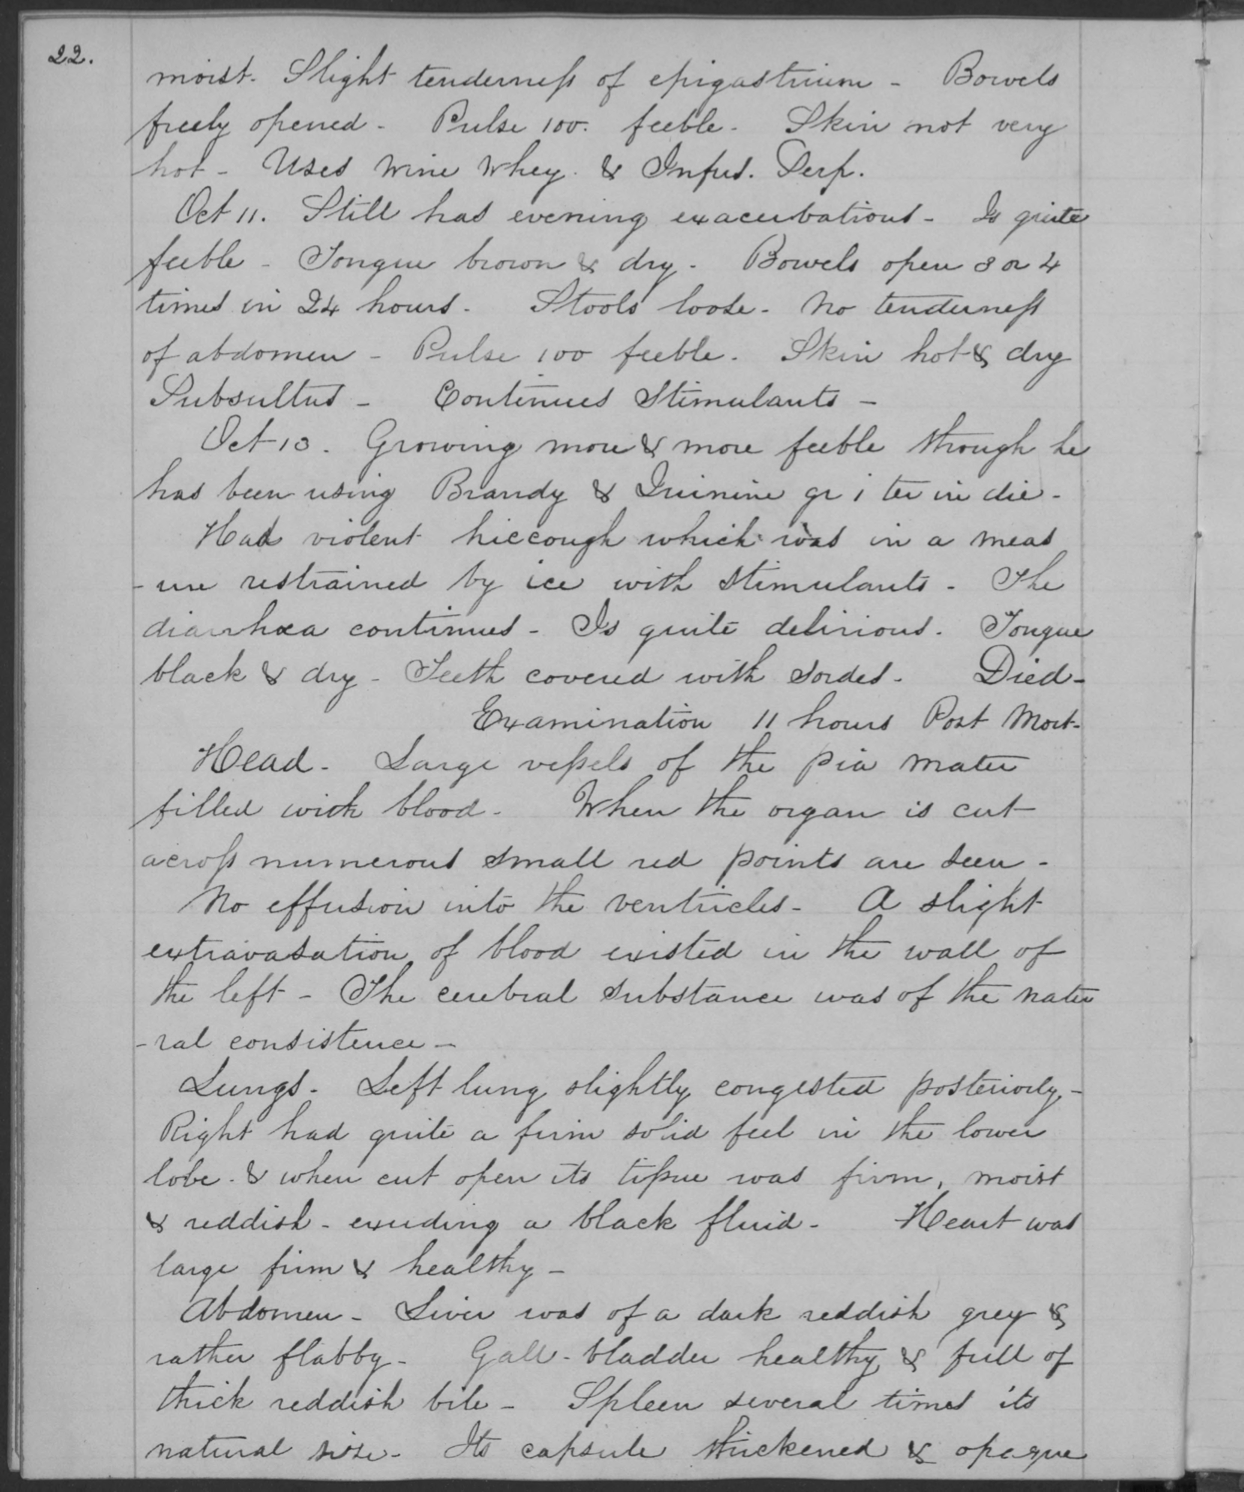 22.
moist. Slight tenderness of epigastrium - Bowels
freely opened - Pulse 100. feeble - Skin not very
hot - Uses wine whey. & Infus. Serp.
Oct 11. Still has evening exacerbations - Is quite
feeble - Tongue brown & dry - Bowels open 3 or 4
times in 24 hours - Stools loose - No tenderness
of abdomen - Pulse 100 feeble - Skin hot & dry
Subsultus - Continues Stimulants -
Oct 13. Growing more & more feeble though he
has been using Brandy & Quinine gr i ter in die -
Had violent hiccough which was in a meas
-ure restrained by ice with stimulants - The
diarrhœa continues - Is quite delirious. Tongue
black & dry - Teeth covered with sordes - Died -
Examination 11 hours Post Mort -
Head - Large vessels of the pia mater
filled with blood - When the organ is cut
across numerous small red points are seen -
No effusion into the ventricles - A slight
extravasation of blood existed in the wall of
the left - The cerebral substance was of the natu
-ral consistence -
Lungs - Left lung slightly congested posteriorly -
Right had quite a firm solid feel in the lower
lobe - & when cut open its tissue was firm, moist
& reddish - exuding a black fluid - Heart was
large firm & healthy -
Abdomen - Liver was of a dark reddish grey &
rather flabby - Gall - bladder healthy & full of
thick reddish bile - Spleen several times its
natural size - Its capsule thickened & opaque